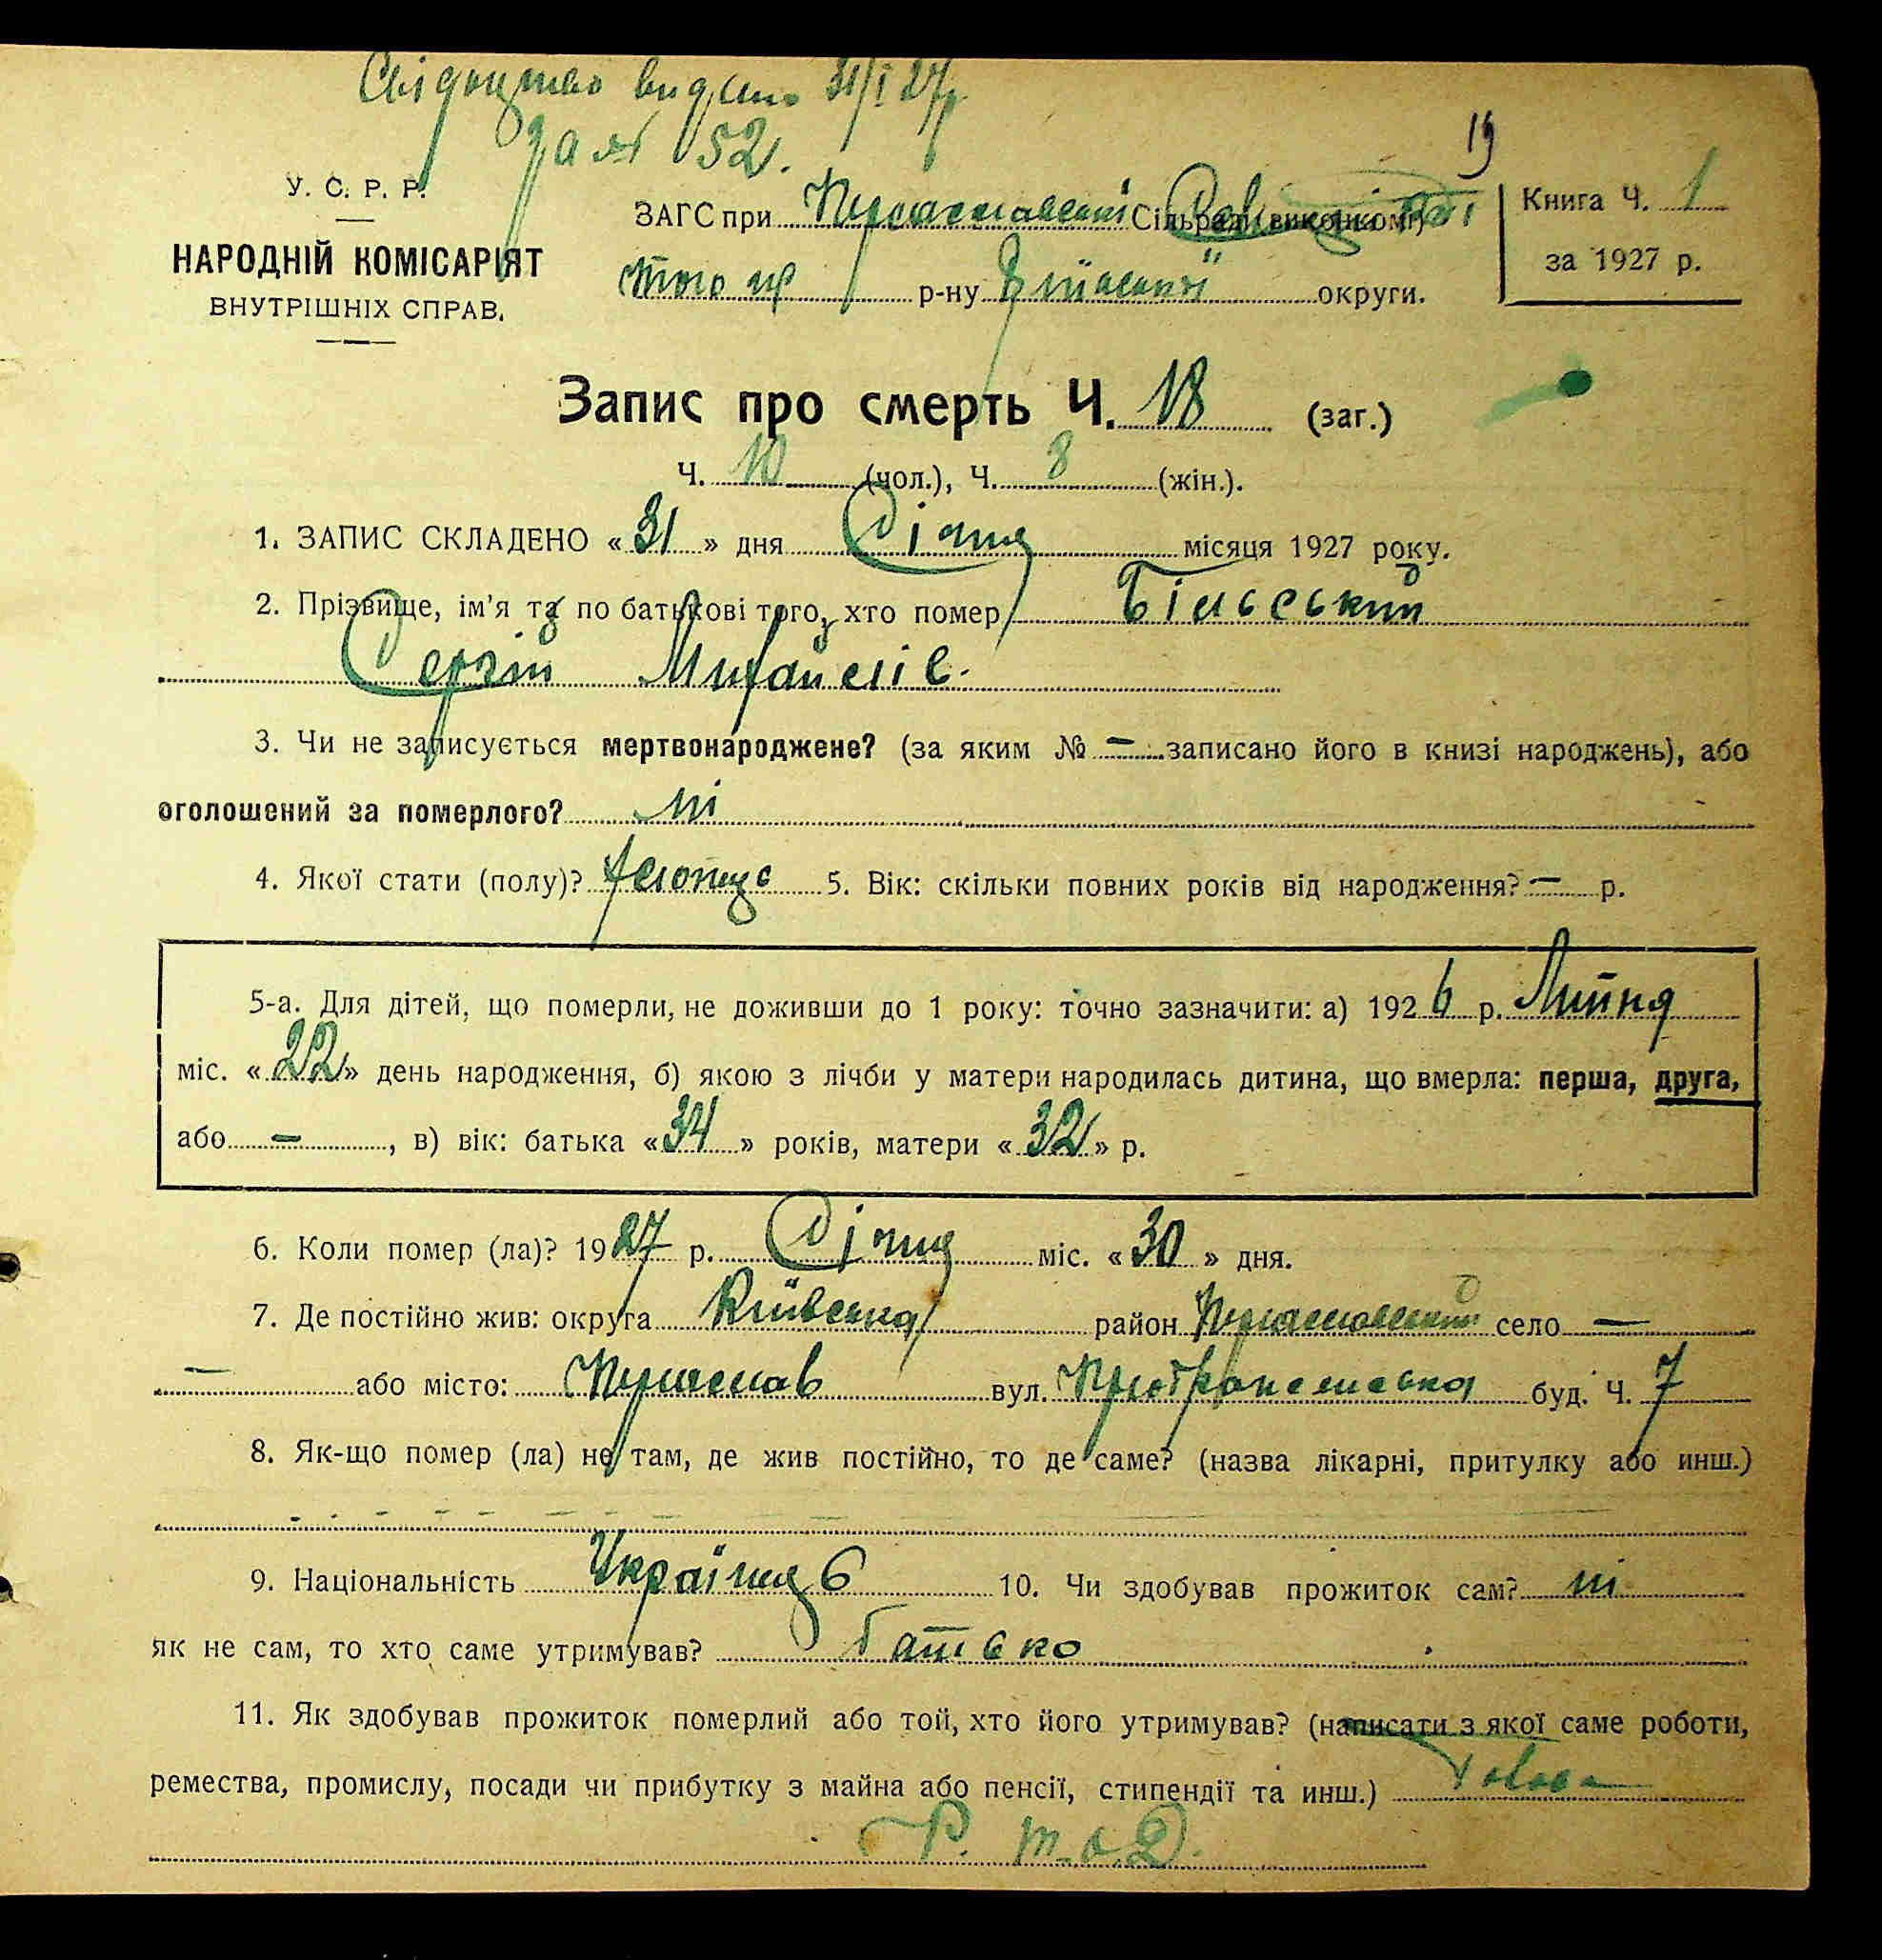 Свідоцтво видано 31/I 27р.
за № 52.
19
У. С. Р. Р.
НАРОДНІЙ КОМІСАРІЯТ
ВНУТРІШНІХ СПРАВ.
ЗАГС при Переяславській Сільраді (виконкомі)
того ж р-ну Київської округи.
Книга Ч. 1
за 1927 р.
Запис про смерть Ч. 18 (заг.)
Ч. 10 (чол.), Ч. 8 (жін.).
1. ЗАПИС СКЛАДЕНО « 31 » дня Січня місяця 1927 року.
2. Прізвище, ім'я та по батькові того, хто помер Більський
Сергій Михайлів.
3. Чи не записується мертвонароджене? (за яким № — записано його в книзі народжень), або
оголошений за померлого? ні
4. Якої стати (полу)? хлопець 5. Вік: скільки повних років від народження? — р.
5-а. Для дітей, що померли, не доживши до 1 року: точно зазначити: а) 1926 р. Липня
міс. « 22 » день народження, б) якою з лічби у матери народилась дитина, що вмерла: перша, друга,
або — , в) вік: батька « 34 » років, матери « 32 » р.
6. Коли помер (ла)? 1927 р. Січня міс. « 30 » дня.
7. Де постійно жив: округа Київська район Переяславський село —
— або місто: Переяслав вул. буд. Ч. 7
8. Як-що помер (ла) не там, де жив постійно, то де саме? (назва лікарні, притулку або инш.)
9. Національність Українець 10. Чи здобував прожиток сам? ні
як не сам, то хто саме утримував? батько
11. Як здобував прожиток померлий або той, хто його утримував? (написати з якої саме роботи,
ремества, промислу, посади чи прибутку з майна або пенсії, стипендії та инш.) Голова
Р. т.о.Д.